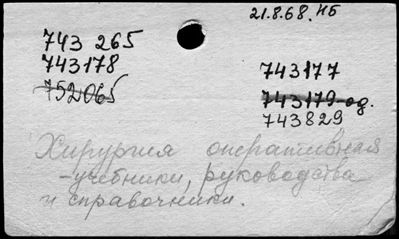 21.8.68. НБ
743 265
743178
752065
743177
743179-од.
743829
Хирургия оперативная
-учебники, руководства
и справочники.